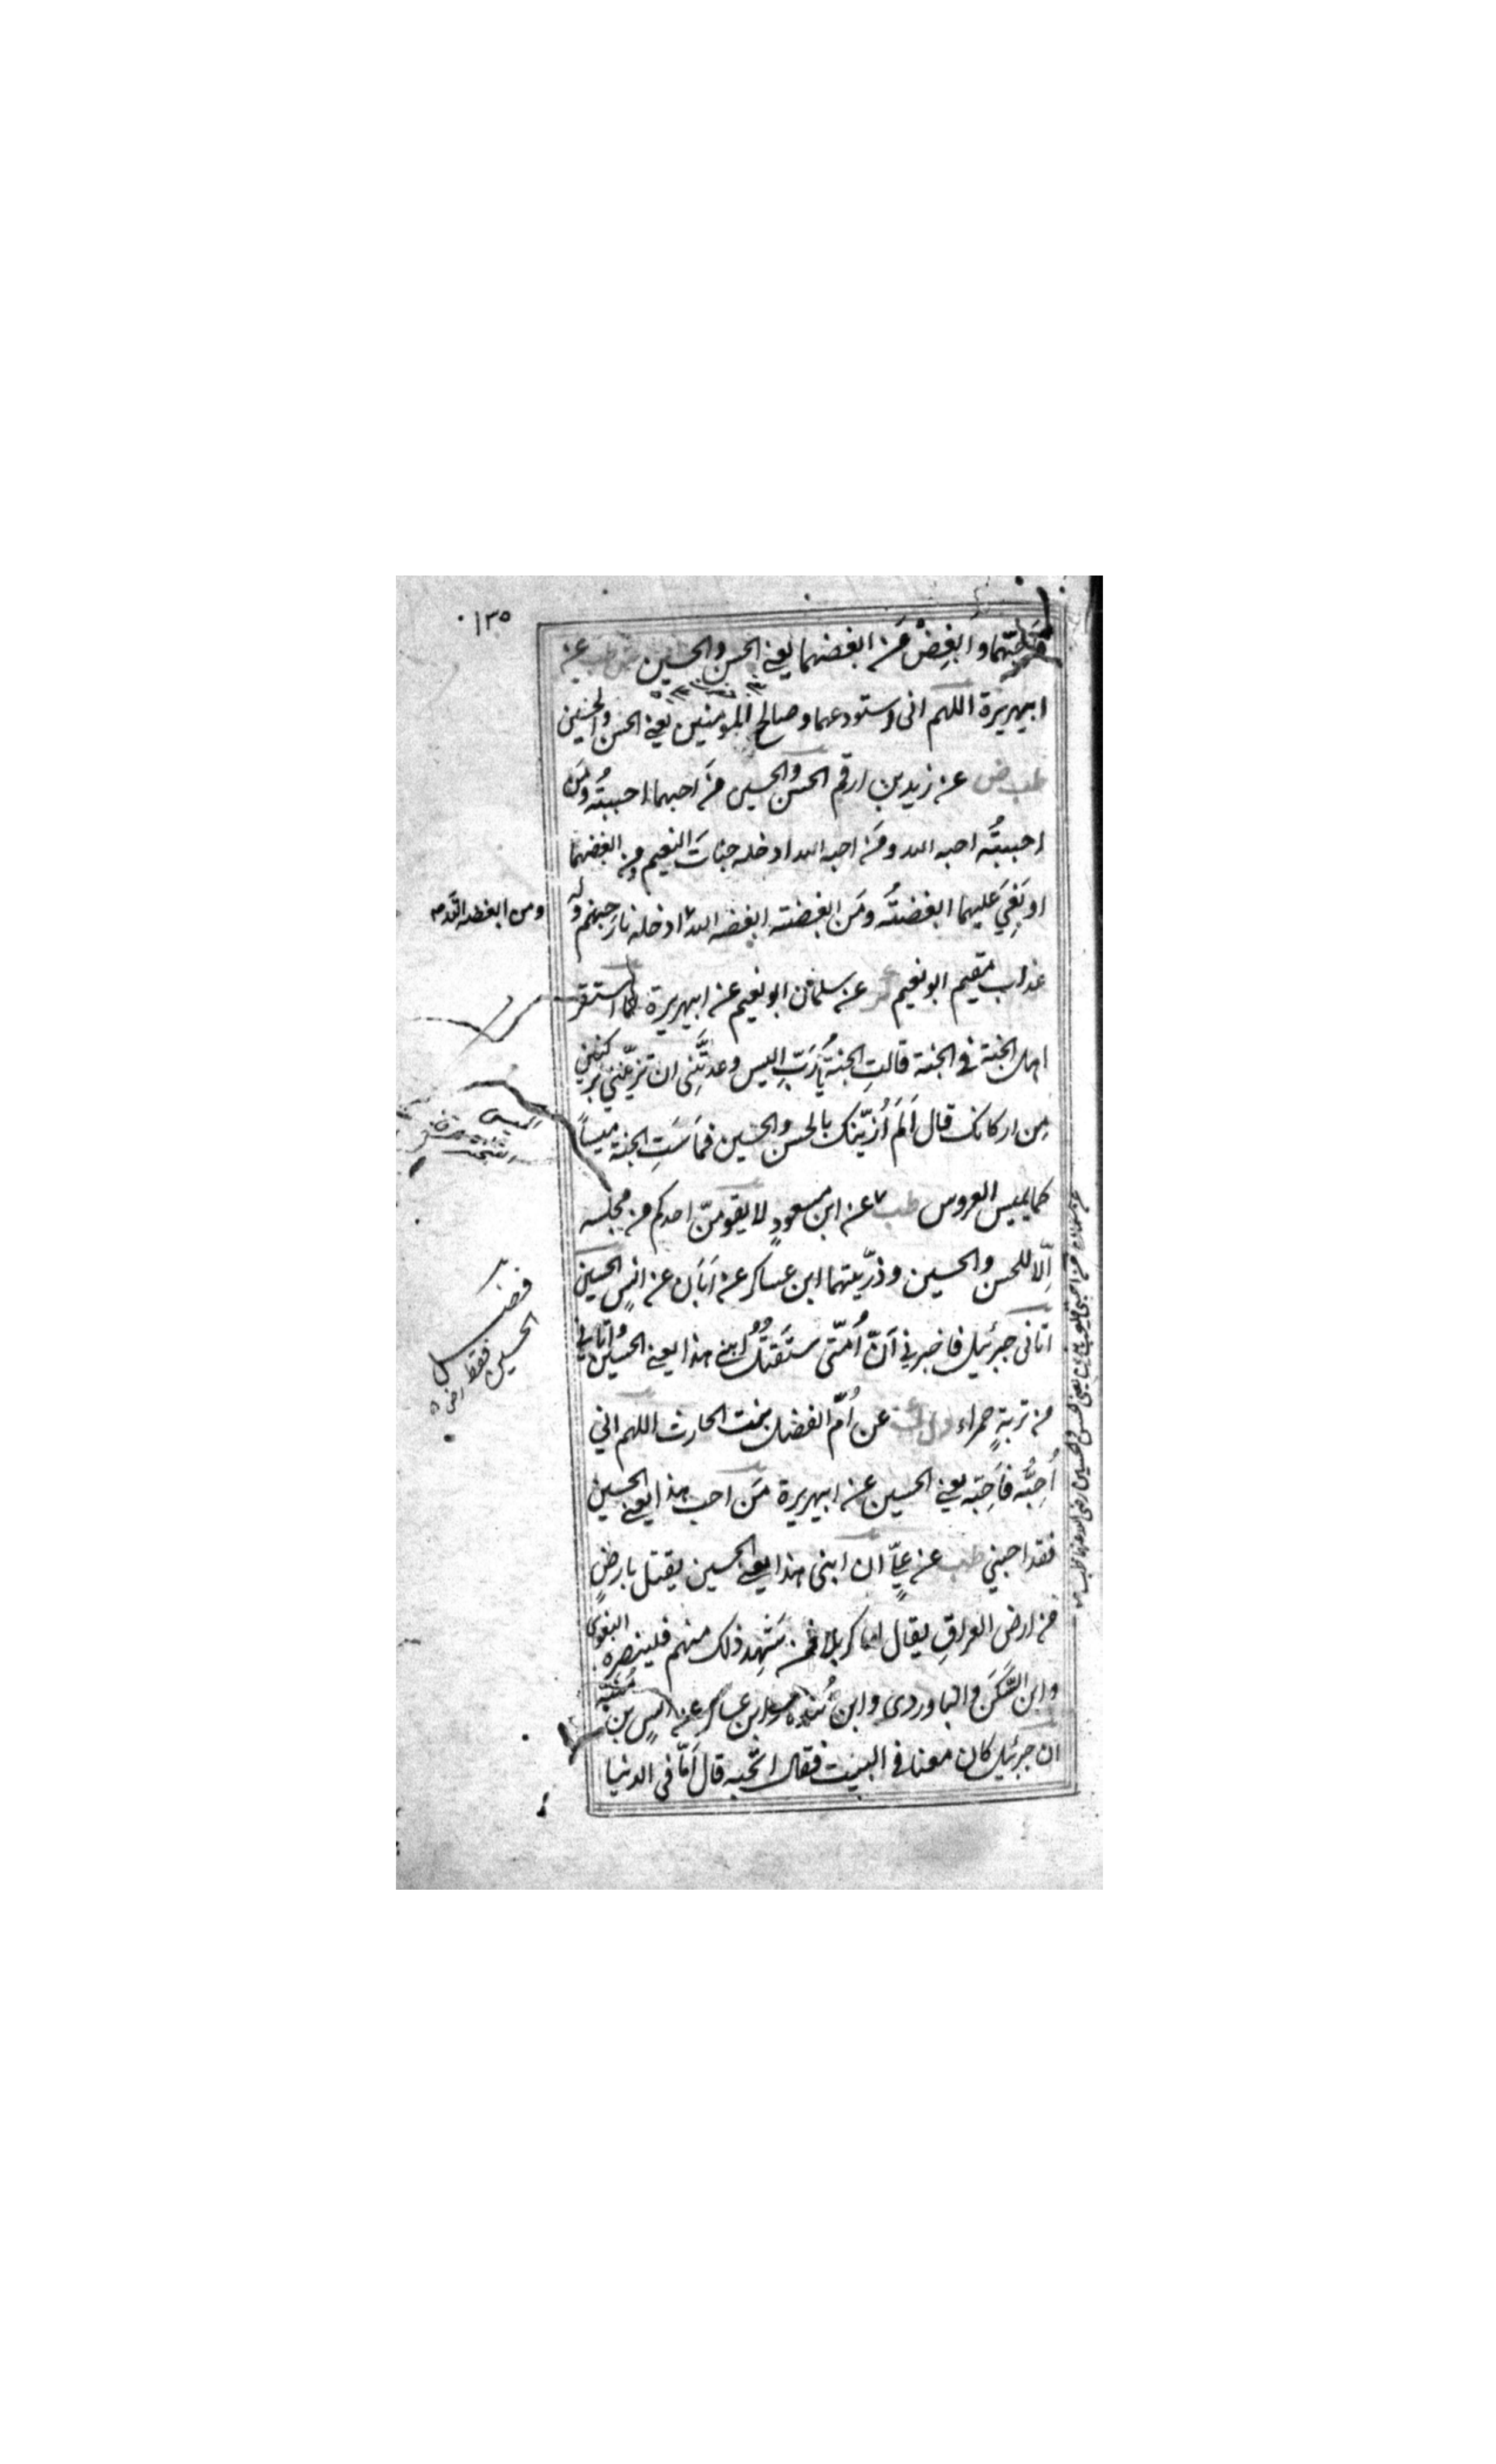 ١٣٥
من احبّهما وابغِضْ مَن ابغضهما يعني الحسن والحسين طب عن
ابيهريرة اللهم انى استودعهما وصالح المومنين يعني الحسن والحسين
طب ض عن زيد بن ارقم الحسن والحسين مَن احبهما احببتُه ومَن
احببتُه احبه الله ومَن احبه الله ادخله جنات النعيم ومن ابغضهما
او بَغِيَ عليهما ابغضتُه ومَن ابغضته ابغضه الله ادخله نار جهنم وله
عذاب مقيم ابو نعيم كر عن سلمان ابو نعيم عن ابيهريرة لما استقر
اهل الجنة في الجنة قالتِ الجنةُ يا رَبِّ اليس وعدتَّنِى ان تزيّنني بركنين
مِن اركانك قال اَلَم اُزيّنك بالحسن والحسين فمَاسَتِ الجنة ميساً
كما يميس العروس طب عن ابن مسعودٍ لا يقومنّ احدكم من مجلسه
اِلّا للحسن والحسين وذرّيتهما ابن عساكر عن اَبَان عن انسٍ الحسين
اتانى جبرئيل فاخبرني اَنّ اُمّتى ستَقتُلُ ابني هذا يعني الحسين واتاني
من تربةٍ حمراء د ك عن اُمّ الفضل بنت الحارث اللهم اني
اُحِبُّه فاَحِبّه يعني الحسين عن ابيهريرة مَن احب هذا يعني الحسين
فقد احبني طب عن عليٍّ ان ابنى هذا يعني الحسين يقتل بارضٍ
من ارض العراقِ يقال لها كربلا فمن شَهِد ذلك منهم فلينصره البغوى
وابن السَّكَن والباوردى وابن مُنده وابن عساكر عن انسٍ بن
ان جبرئيل كان معنا في البيت فقال اتحبه قال اَمّا فى الدنيا
ومن ابغضه الله
الميس
فضل
الحسين فقط